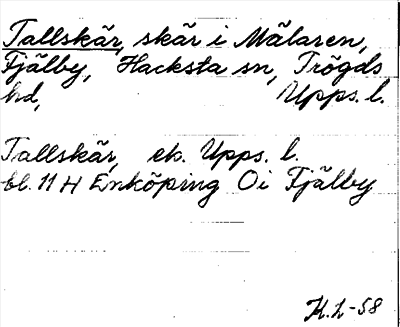 Tallskär, skär i Mälaren,
Fjälby, Hacksta sn, Trögds
hd, Upps. l.
Tallskär, ek. Upps. l.
bl. 11 H Enköping Oi Fjälby
H.L-58